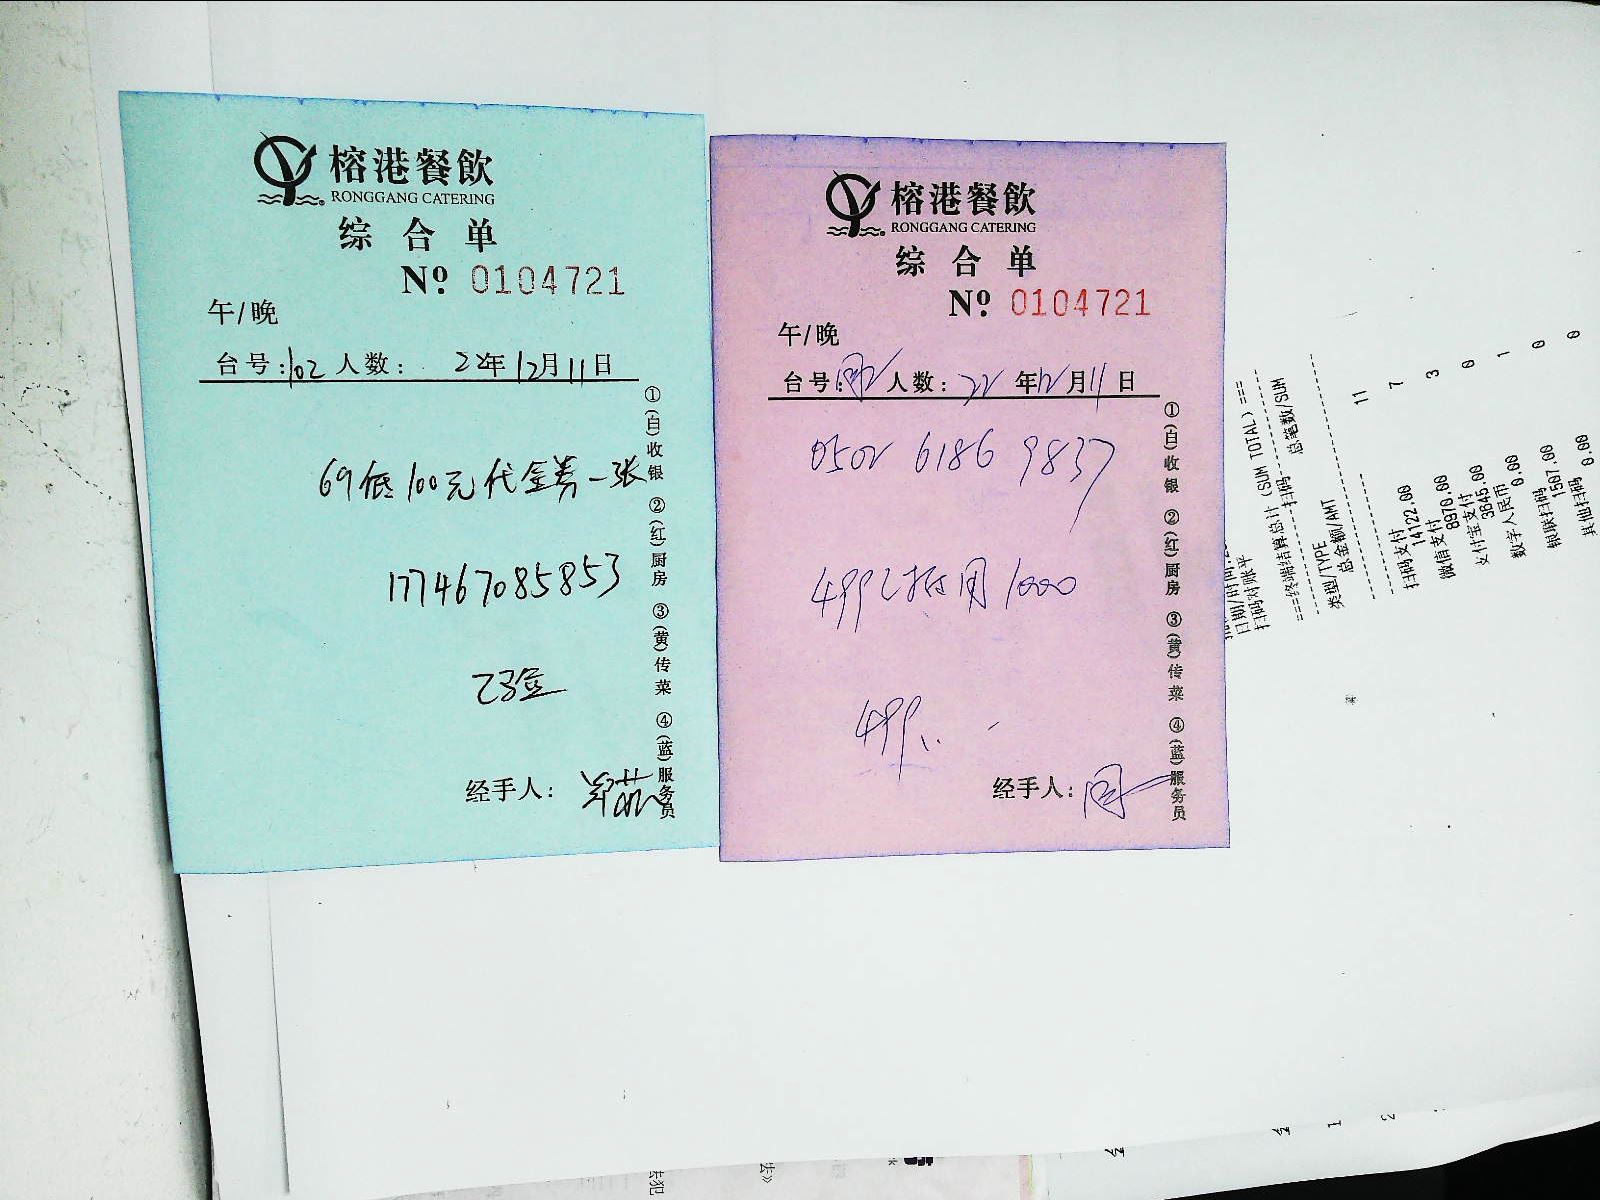 榕港餐飲
RONGGANG CATERING
综合单
Nº 0104721
午/晚
台号:102 人数: 22年12月11日
69低100元代金券一张
177467085853
已验
经手人:
①(白)收银 ②(红)厨房 ③(黄)传菜 ④(蓝)服务员
榕港餐飲
RONGGANG CATERING
综合单
Nº 0104721
午/晚
台号: 人数: 22年12月11日
0502 6186 9837
499 抵用1000
499
经手人:周
①(白)收银 ②(红)厨房 ③(黄)传菜 ④(蓝)服务员
扫码对账平
===终端结算总计(SUM TOTAL)===
扫码
类型/TYPE 总笔数/SUM
总金额/AMT
扫码支付 11
14122.00
微信支付 7
8970.00
支付宝支付 3
3645.00
数字人民币 0
0.00
银联扫码 1
1507.00 0
其他扫码 0
0.00